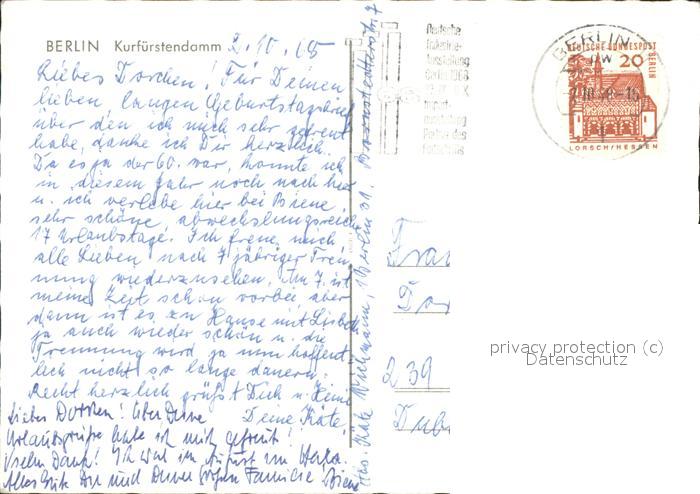 BERLIN Kurfürstendamm 2.10.68
Liebes Dorchen! Für Deinen
lieben, langen Geburtstagsbrief
über den ich mich sehr gefreut
habe, danke ich Dir herzlich.
Da es ja der 60. war, konnte ich
in diesem Jahr noch nach hier
u. ich verlebe hier bei Biene
sehr schöne, abwechslungsreiche
17 Urlaubstage. Ich freue mich
alle Lieben nach 7 jähriger Tren
nung wiederzusehen. Am 7. ist
meine Zeit schon vorbei, aber
dann ist es zu Hause mit Lisbeth
ja auch wieder schön u. die
Trennung wird ja nun hoffent
lich nicht so lange dauern.
Recht herzlich grüßt Dich u. Deine
Deine Käte
Liebes Dorchen! Über Deine
Urlaubsgrüße habe ich mich gefreut!
Vielen Dank! Ich war im August im
Alles Gute Dir und Deiner Familie Biene
Abs. Käte Wichmann, 1 Berlin 31.
Deutsche
Industrie-
Ausstellung
Berlin 1968
Import-
ausstellung
Partner des
Fortschritts
BERLIN
DEUTSCHE BUNDESPOST
BERLIN
20
LORSCH/HESSEN
Frau
239
privacy protection (c)
Datenschutz